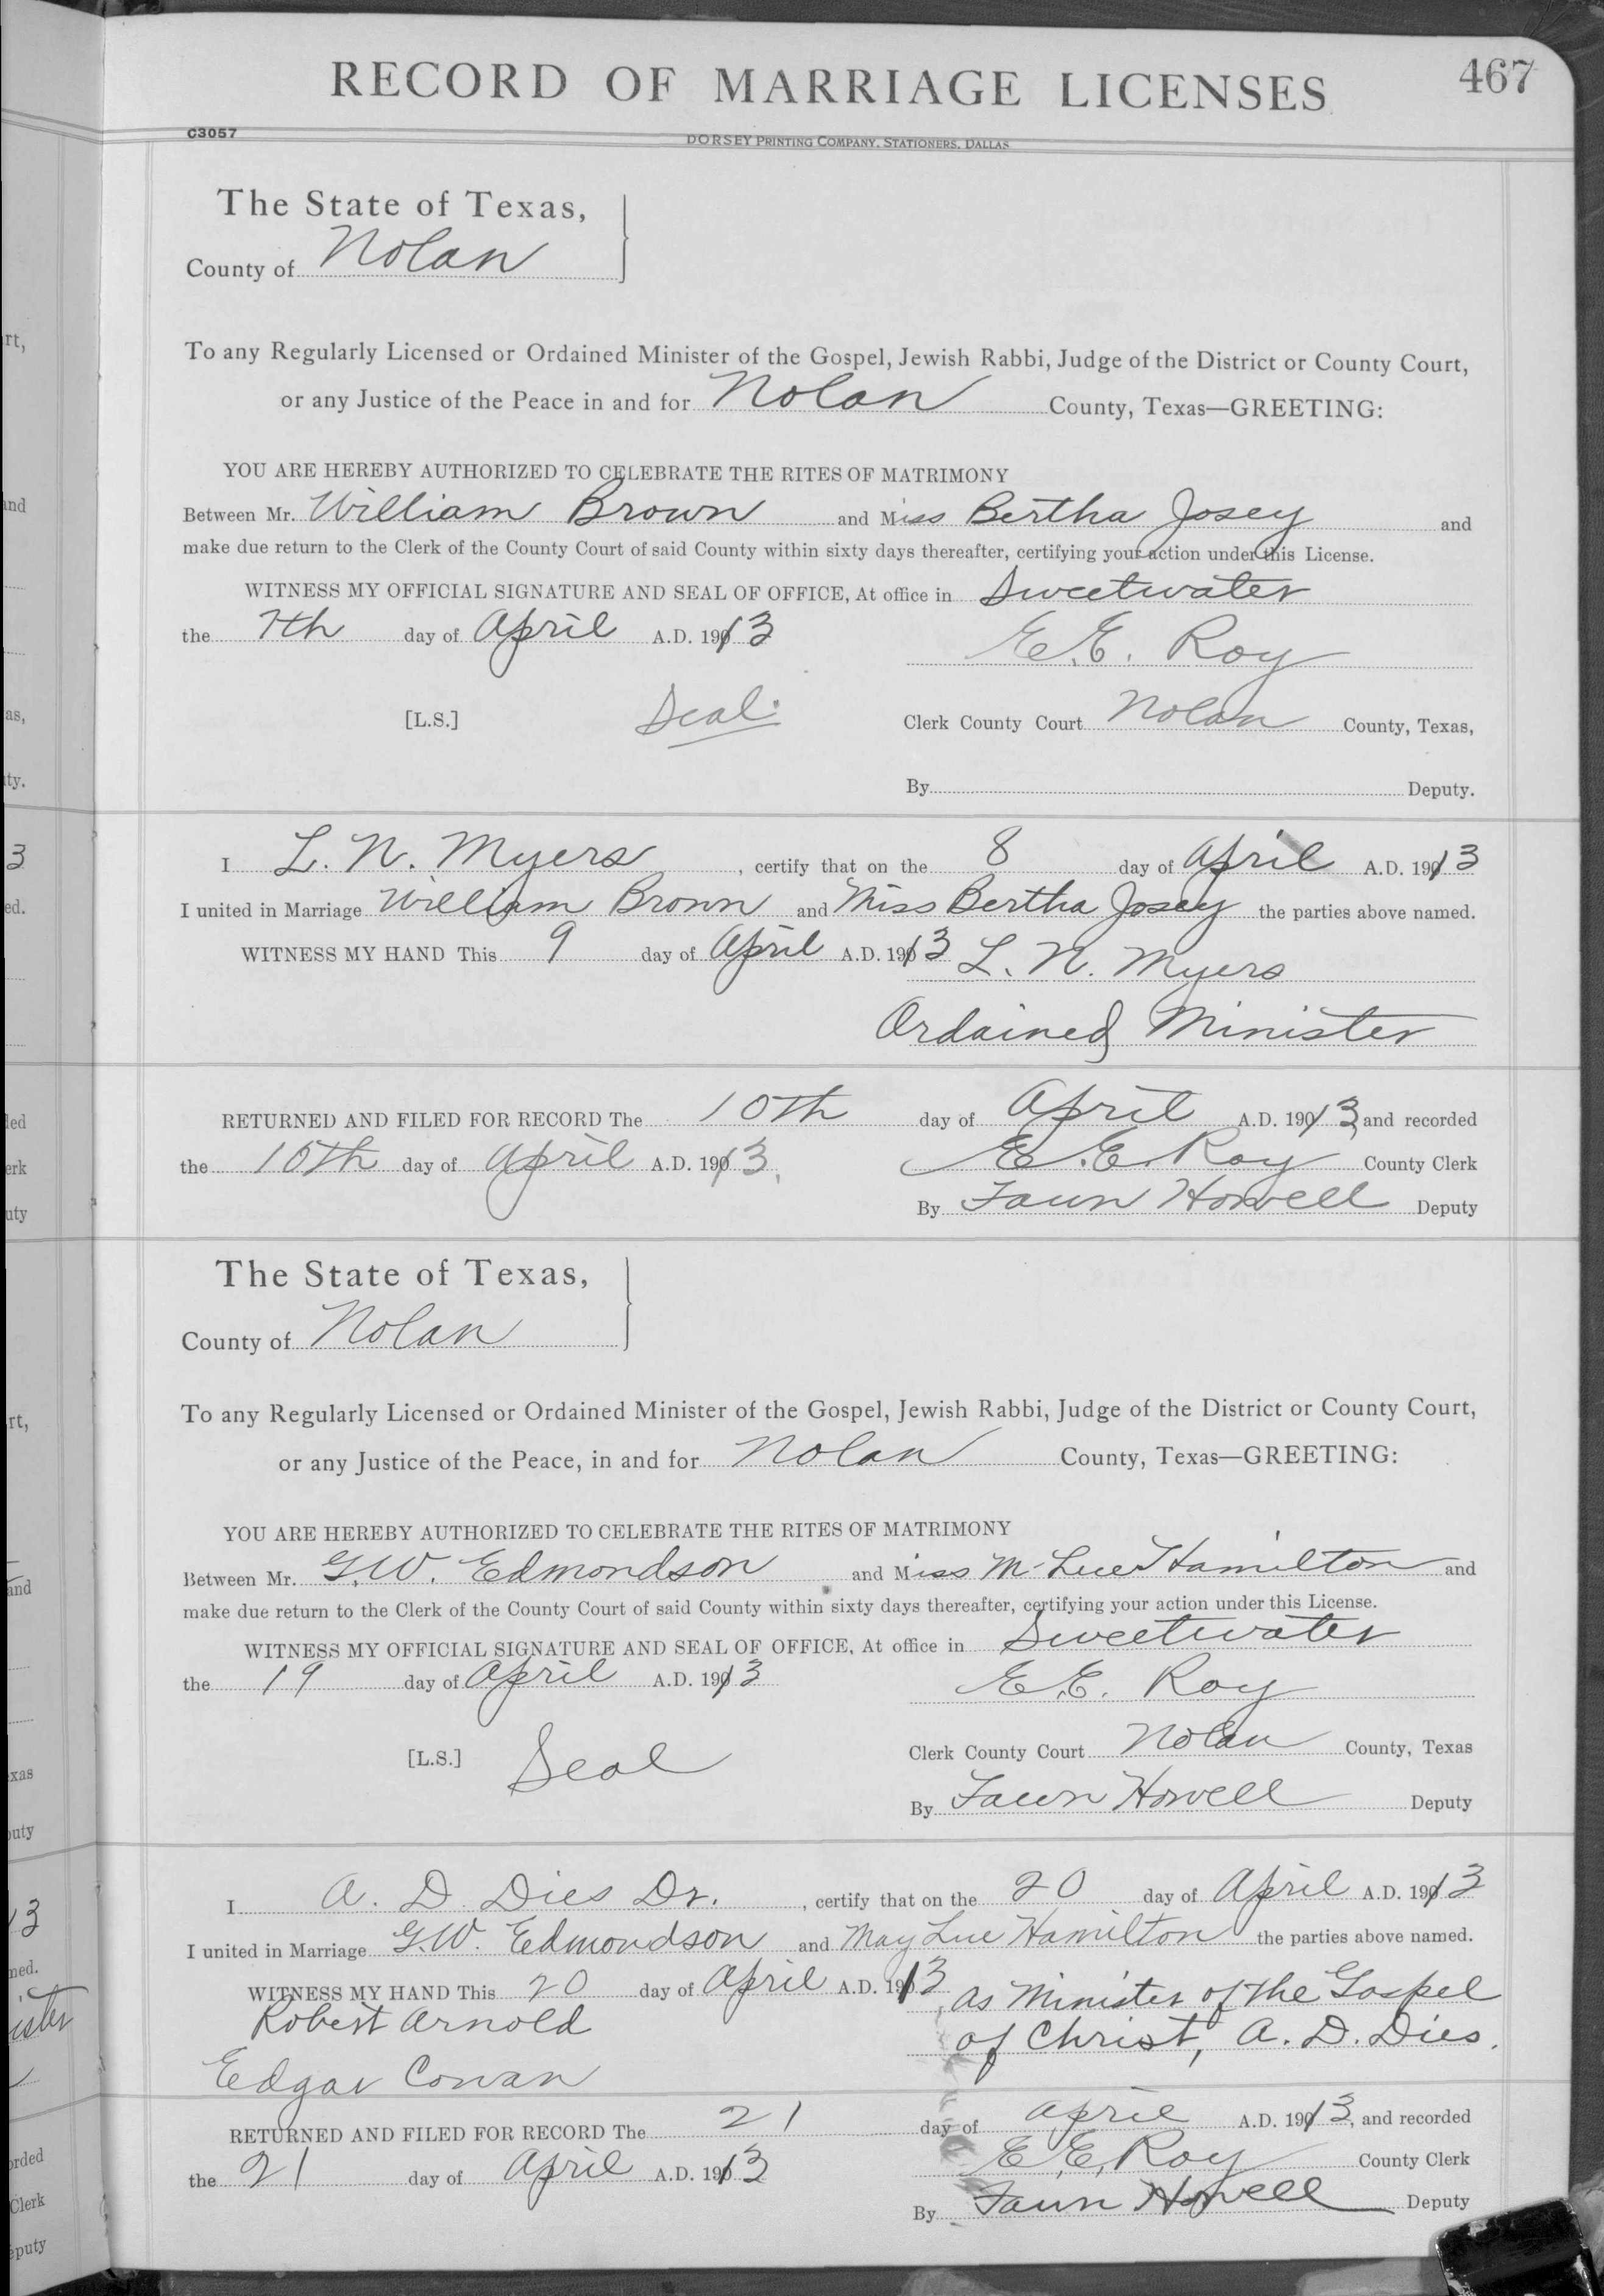 RECORD OF MARRIAGE LICENSES 467
C3057
DORSEY PRINTING COMPANY, STATIONERS, DALLAS
The State of Texas,
County of Nolan
To any Regularly Licensed or Ordained Minister of the Gospel, Jewish Rabbi, Judge of the District or County Court,
or any Justice of the Peace in and for Nolan County, Texas—GREETING:
YOU ARE HEREBY AUTHORIZED TO CELEBRATE THE RITES OF MATRIMONY
Between Mr. William Brown and Miss Bertha Josey and
make due return to the Clerk of the County Court of said County within sixty days thereafter, certifying your action under this License.
WITNESS MY OFFICIAL SIGNATURE AND SEAL OF OFFICE, At office in Sweetwater
the 7th day of April A.D. 1913
E.E. Roy
[L.S.] Seal Clerk County Court Nolan County, Texas,
By Deputy.
I L. N. Myers, certify that on the 8 day of April A.D. 1913
I united in Marriage William Brown and Miss Bertha Josey the parties above named.
WITNESS MY HAND This 9 day of April A.D. 1913 L. N. Myers
Ordained Minister
RETURNED AND FILED FOR RECORD The 10th day of April A.D. 1913 and recorded
the 10th day of April A.D. 1913. E. E. Roy County Clerk
By Faun Howell Deputy
The State of Texas,
County of Nolan
To any Regularly Licensed or Ordained Minister of the Gospel, Jewish Rabbi, Judge of the District or County Court,
or any Justice of the Peace, in and for Nolan County, Texas—GREETING:
YOU ARE HEREBY AUTHORIZED TO CELEBRATE THE RITES OF MATRIMONY
Between Mr. G.W. Edmondson and Miss M-Lue Hamilton and
make due return to the Clerk of the County Court of said County within sixty days thereafter, certifying your action under this License.
WITNESS MY OFFICIAL SIGNATURE AND SEAL OF OFFICE, At office in Sweetwater
the 19 day of April A.D. 1913 E.E. Roy
[L.S.] Seal Clerk County Court Nolan County, Texas
By Faun Howell Deputy
I A. D. Dies Dr., certify that on the 20 day of April A.D. 1913
I united in Marriage G.W. Edmondson and May Lue Hamilton the parties above named.
WITNESS MY HAND This 20 day of April A.D. 1913, as Minister of the Gospel
Robert Arnold of Christ, A. D. Dies.
Edgar Cowan
RETURNED AND FILED FOR RECORD The 21 day of April A.D. 1913, and recorded
the 21 day of April A.D. 1913 E. E. Roy County Clerk
By Faun Howell Deputy